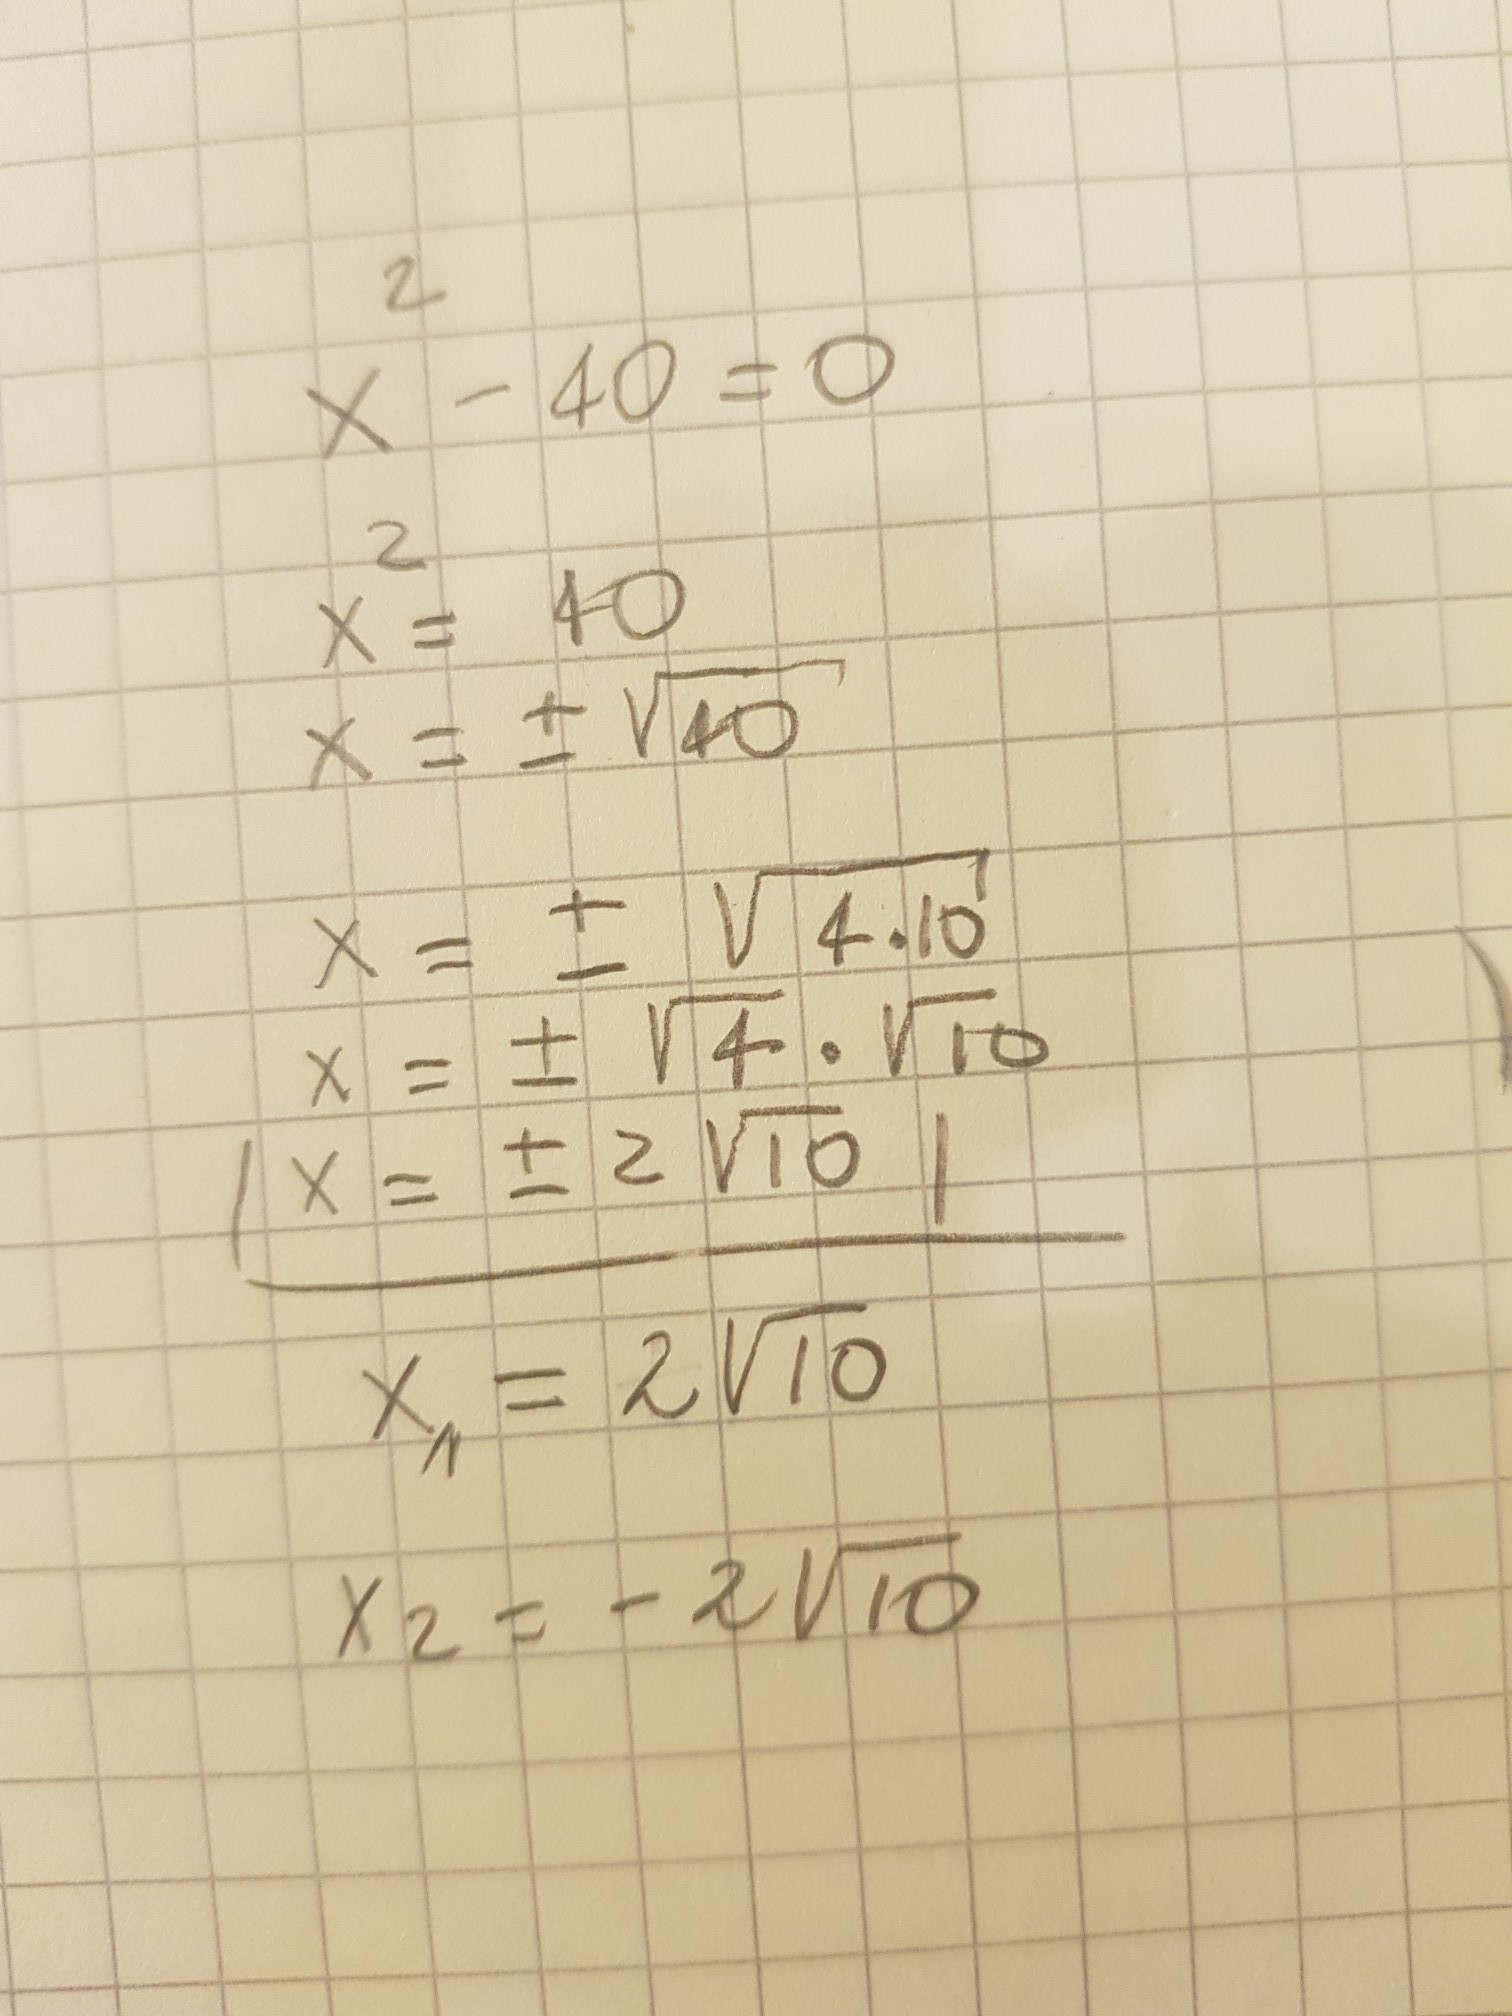 x² - 40 = 0
x² = 40
x = ± √40
x = ± √4·10
x = ± √4 · √10
x = ± 2 √10
x₁ = 2√10
x₂ = - 2√10